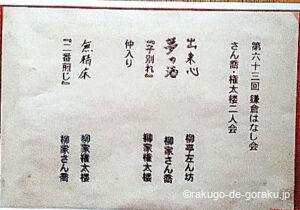 第六十三回 鎌倉はなし会
さん喬・権太楼二人会
出来心 柳亭左ん坊
夢の酒 柳家さん喬
『子別れ』 柳家権太楼
仲入り
無精床 柳家権太楼
『二番煎じ』 柳家さん喬
©rakugo-de-goraku.jp